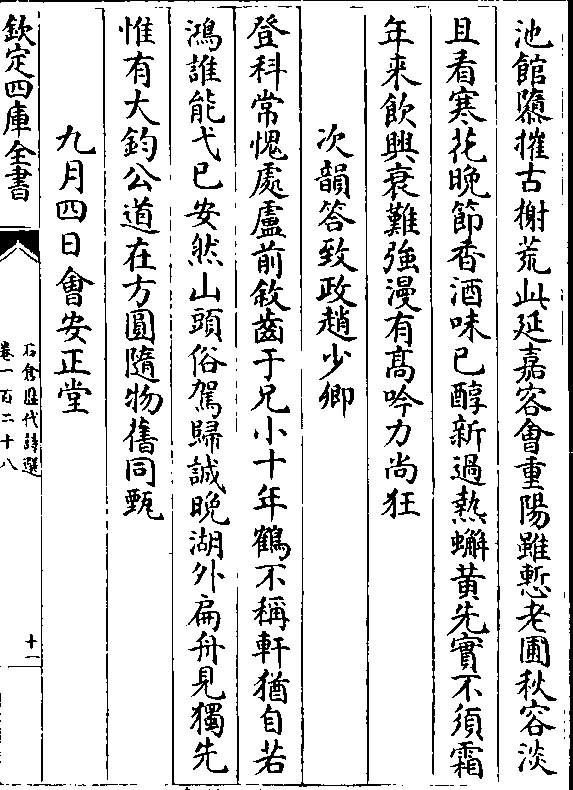 池館隳摧古榭荒此延嘉客會重陽雖慙老圃秋容淡
且看寒花晚節香酒味已醇新過熱蠏黄先實不須霜
年来飲興衰難強漫有髙吟力尚狂
次韻答致政趙少卿
登科常愧處盧前敘齒于兄小十年鶴不稱軒猶自若
鴻誰能弋已安然山頭俗駕歸誠晚湖外扁舟見獨先
惟有大鈞公道在方圓隨物舊同甄
九月四日會安正堂
欽定四庫全書
石倉歷代詩選
卷一百二十八
十一